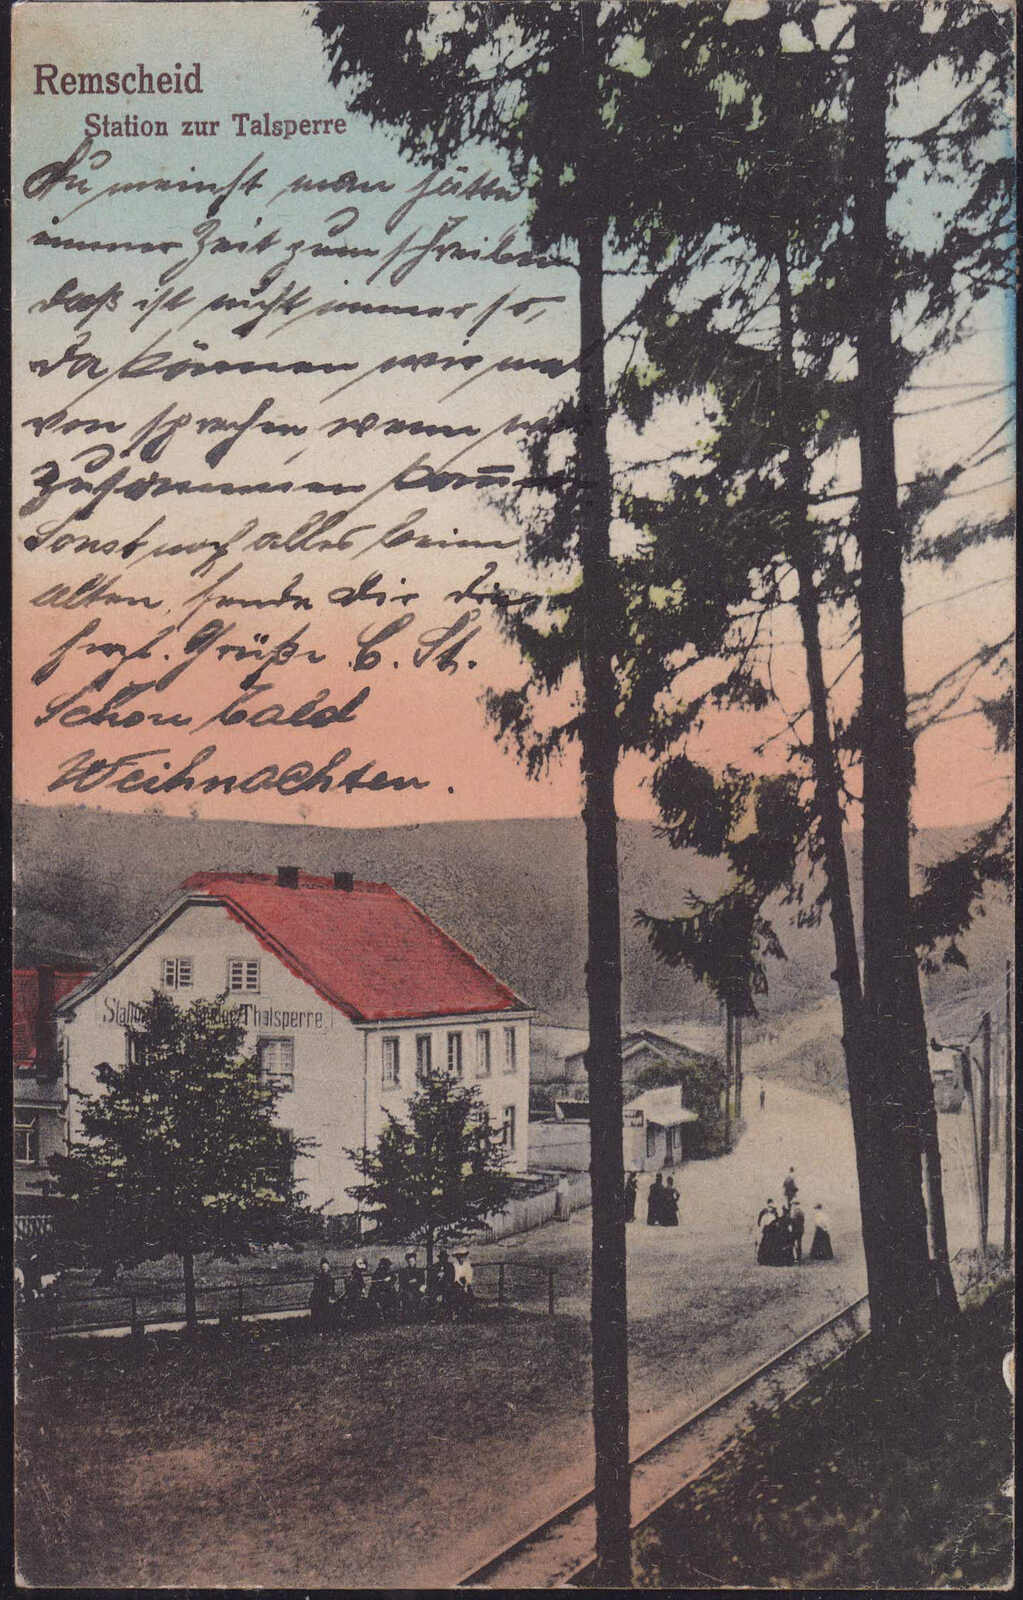 Remscheid
Station zur Talsperre
Du meinst man hätte
immer Zeit zum schreiben
daß ist nicht immer so,
da können wir mal
von sprechen, wenn wir
zusammen kom̅en
Sonst noch alles beim
alten, sende Dir die
herzl. Grüße C. St.
Schon bald
Weihnachten.
Station zur Thalsperre